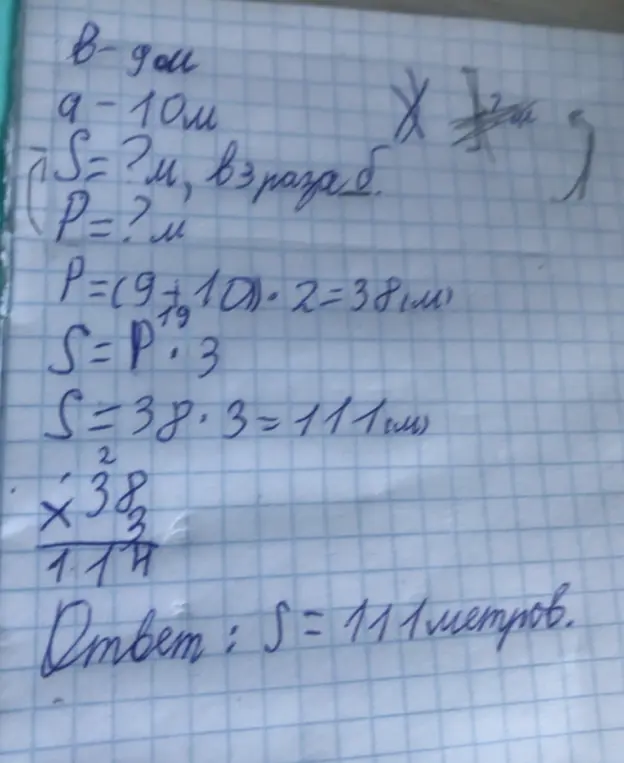 в - 9 м
а - 10 м
S = ? м, в 3 раза б.
P = ? м
P = (9 + 10) · 2 = 38 (м)
19
S = P · 3
S = 38 · 3 = 111 (м)
2
× 38
3
114
Ответ : S = 111 метров.